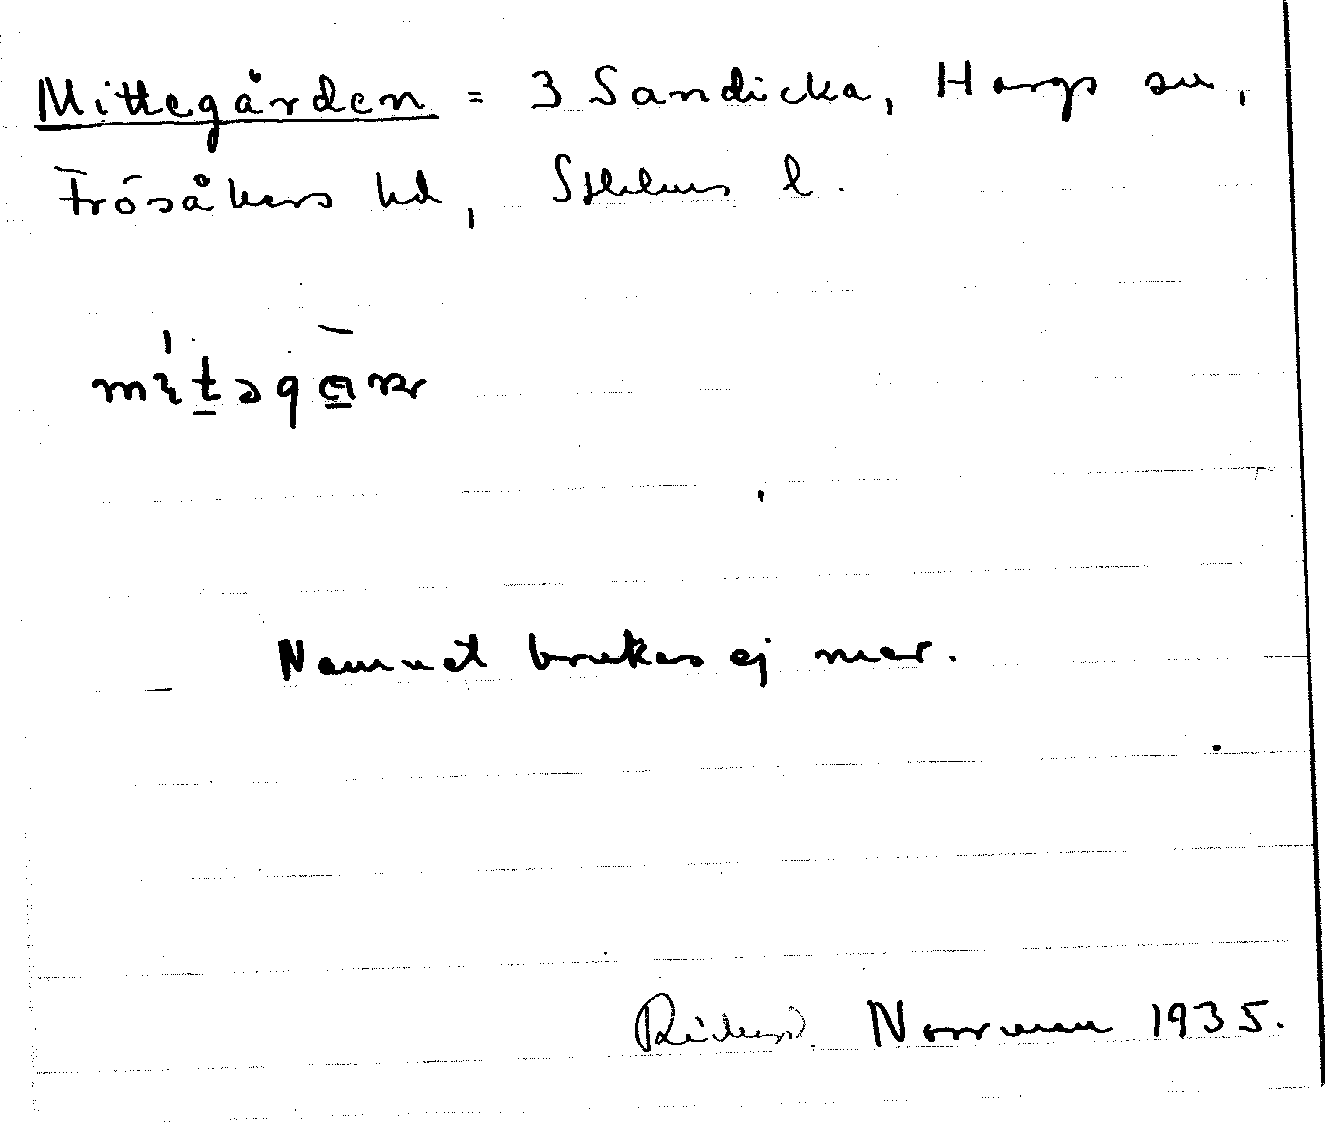 Mittegården = 3 Sandicka, Hargs sn,
Frösåkers hd, Sthlms l.
Namnet brukas ej mer.
Rickard Norrman 1935.